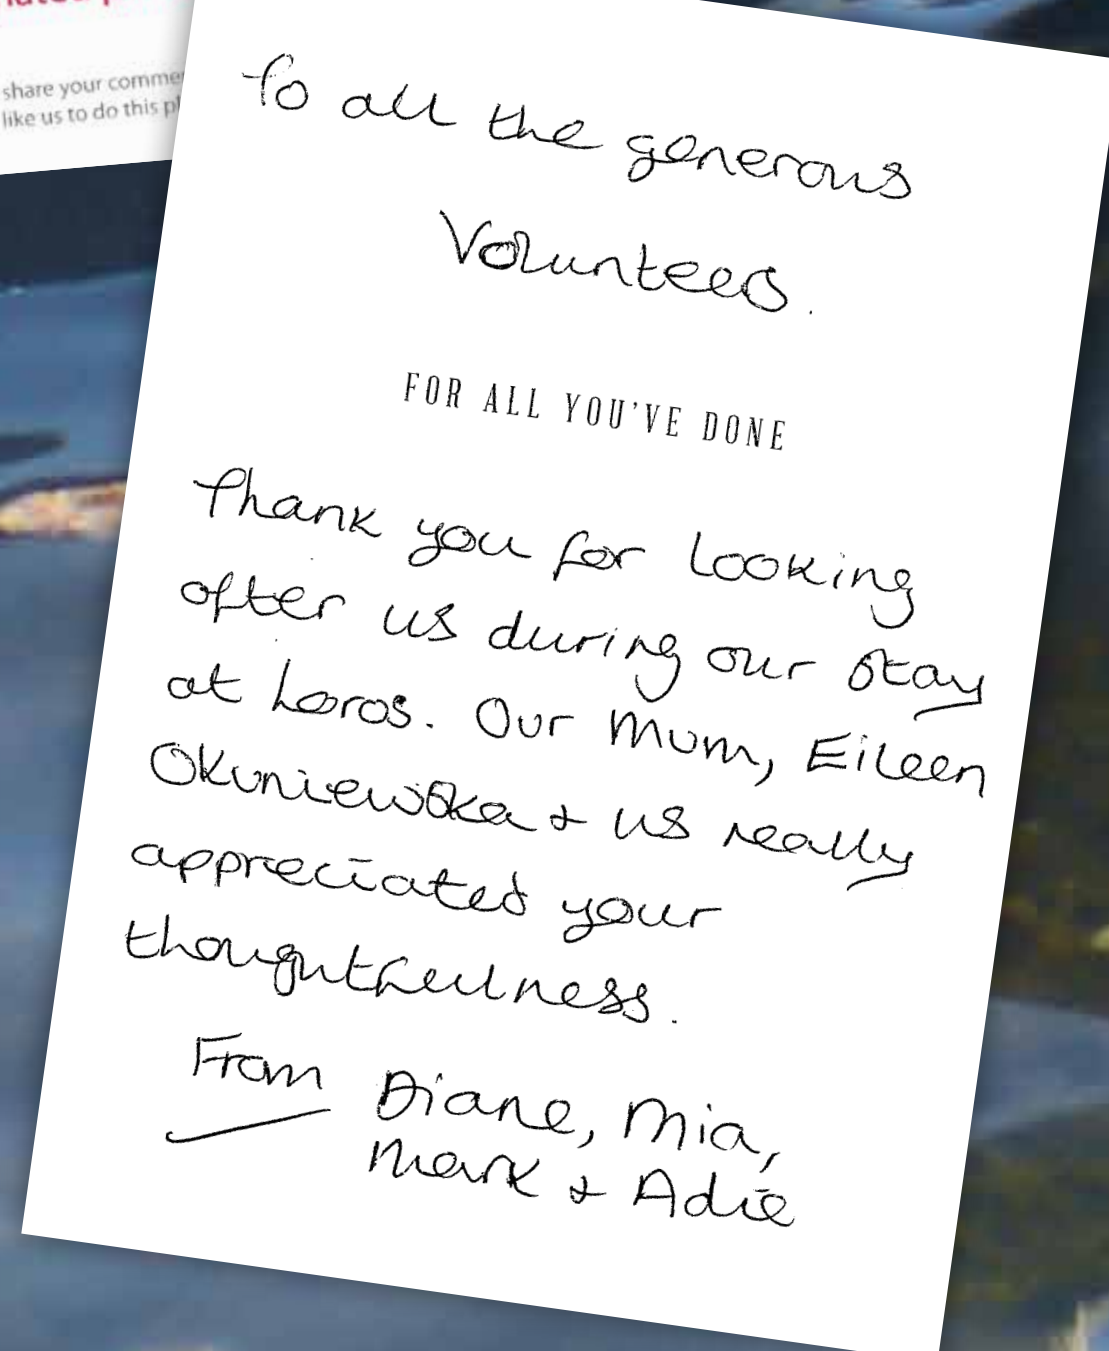 share your comme
like us to do this pl
To all the generous
Volunteers.
FOR ALL YOU'VE DONE
Thank you for looking
after us during our stay
at Loros. Our Mum, Eileen
Okuniewska + us really
appreciated your
thoughtfulness.
From Diane, Mia,
Mark + Adie